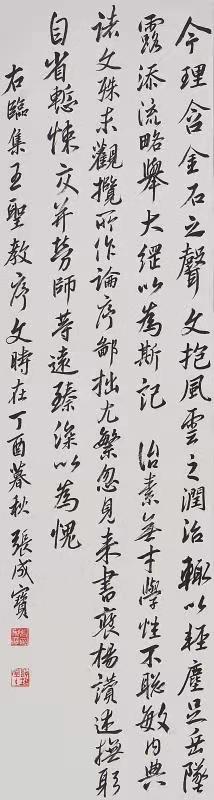 今理含金石之聲文抱風雲之潤治輒以輕塵足岳墜
露添流略舉大綱以為斯記 治素無才學性不聡敏內典
諸文殊未觀攬所作論序鄙拙尤繁忽見來書褒揚讚述撫躬
自省慙悚交并勞師等遠臻深以為愧
右臨集王聖教序文時在丁酉暮秋 張成寶